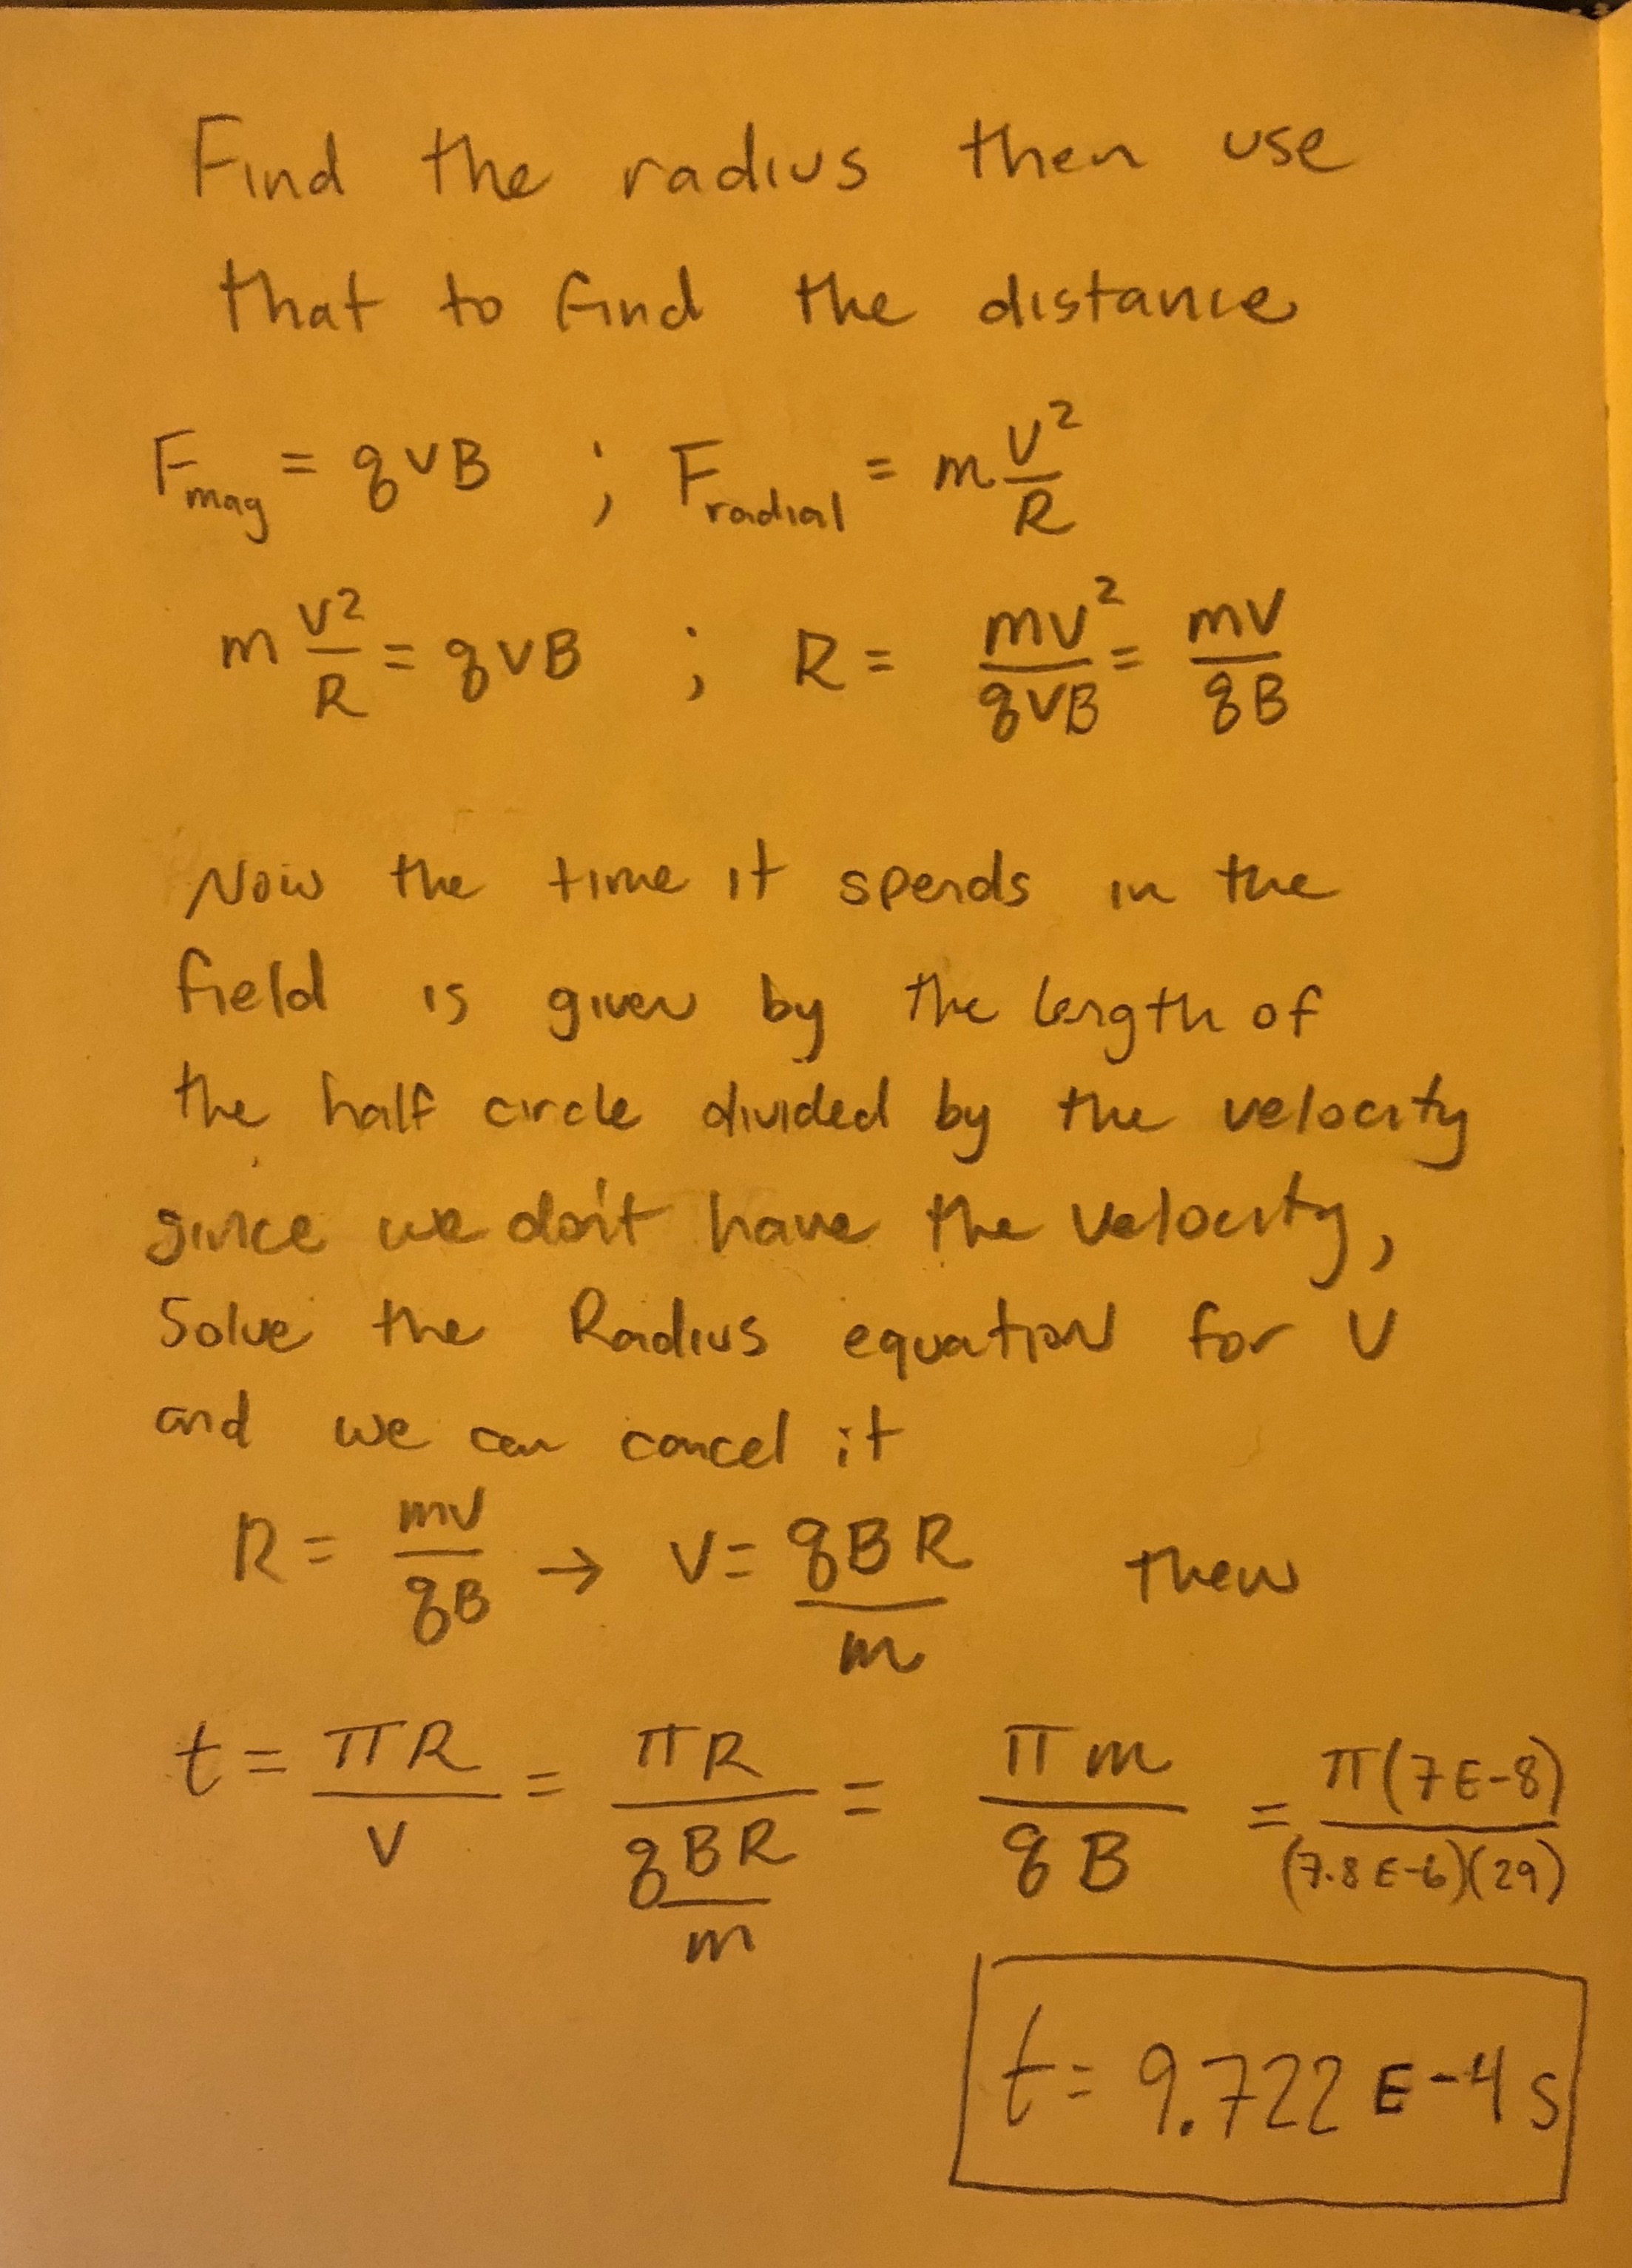 Find the radius then use
that to find the distance
F_mag = qvB ; F_radial = m v²/R
m v²/R = qvB ; R = mv²/qvB = mv/qB
Now the time it spends in the
field is given by the length of
the half circle divided by the velocity
since we don't have the velocity,
Solve the Radius equation for V
and we can cancel it
R = mv/qB → V = qBR/m then
t = πR/V = πR/(qBR/m) = πm/qB = π(7E-8)/(7.8E-6)(29)
t = 9.722 E-4 s